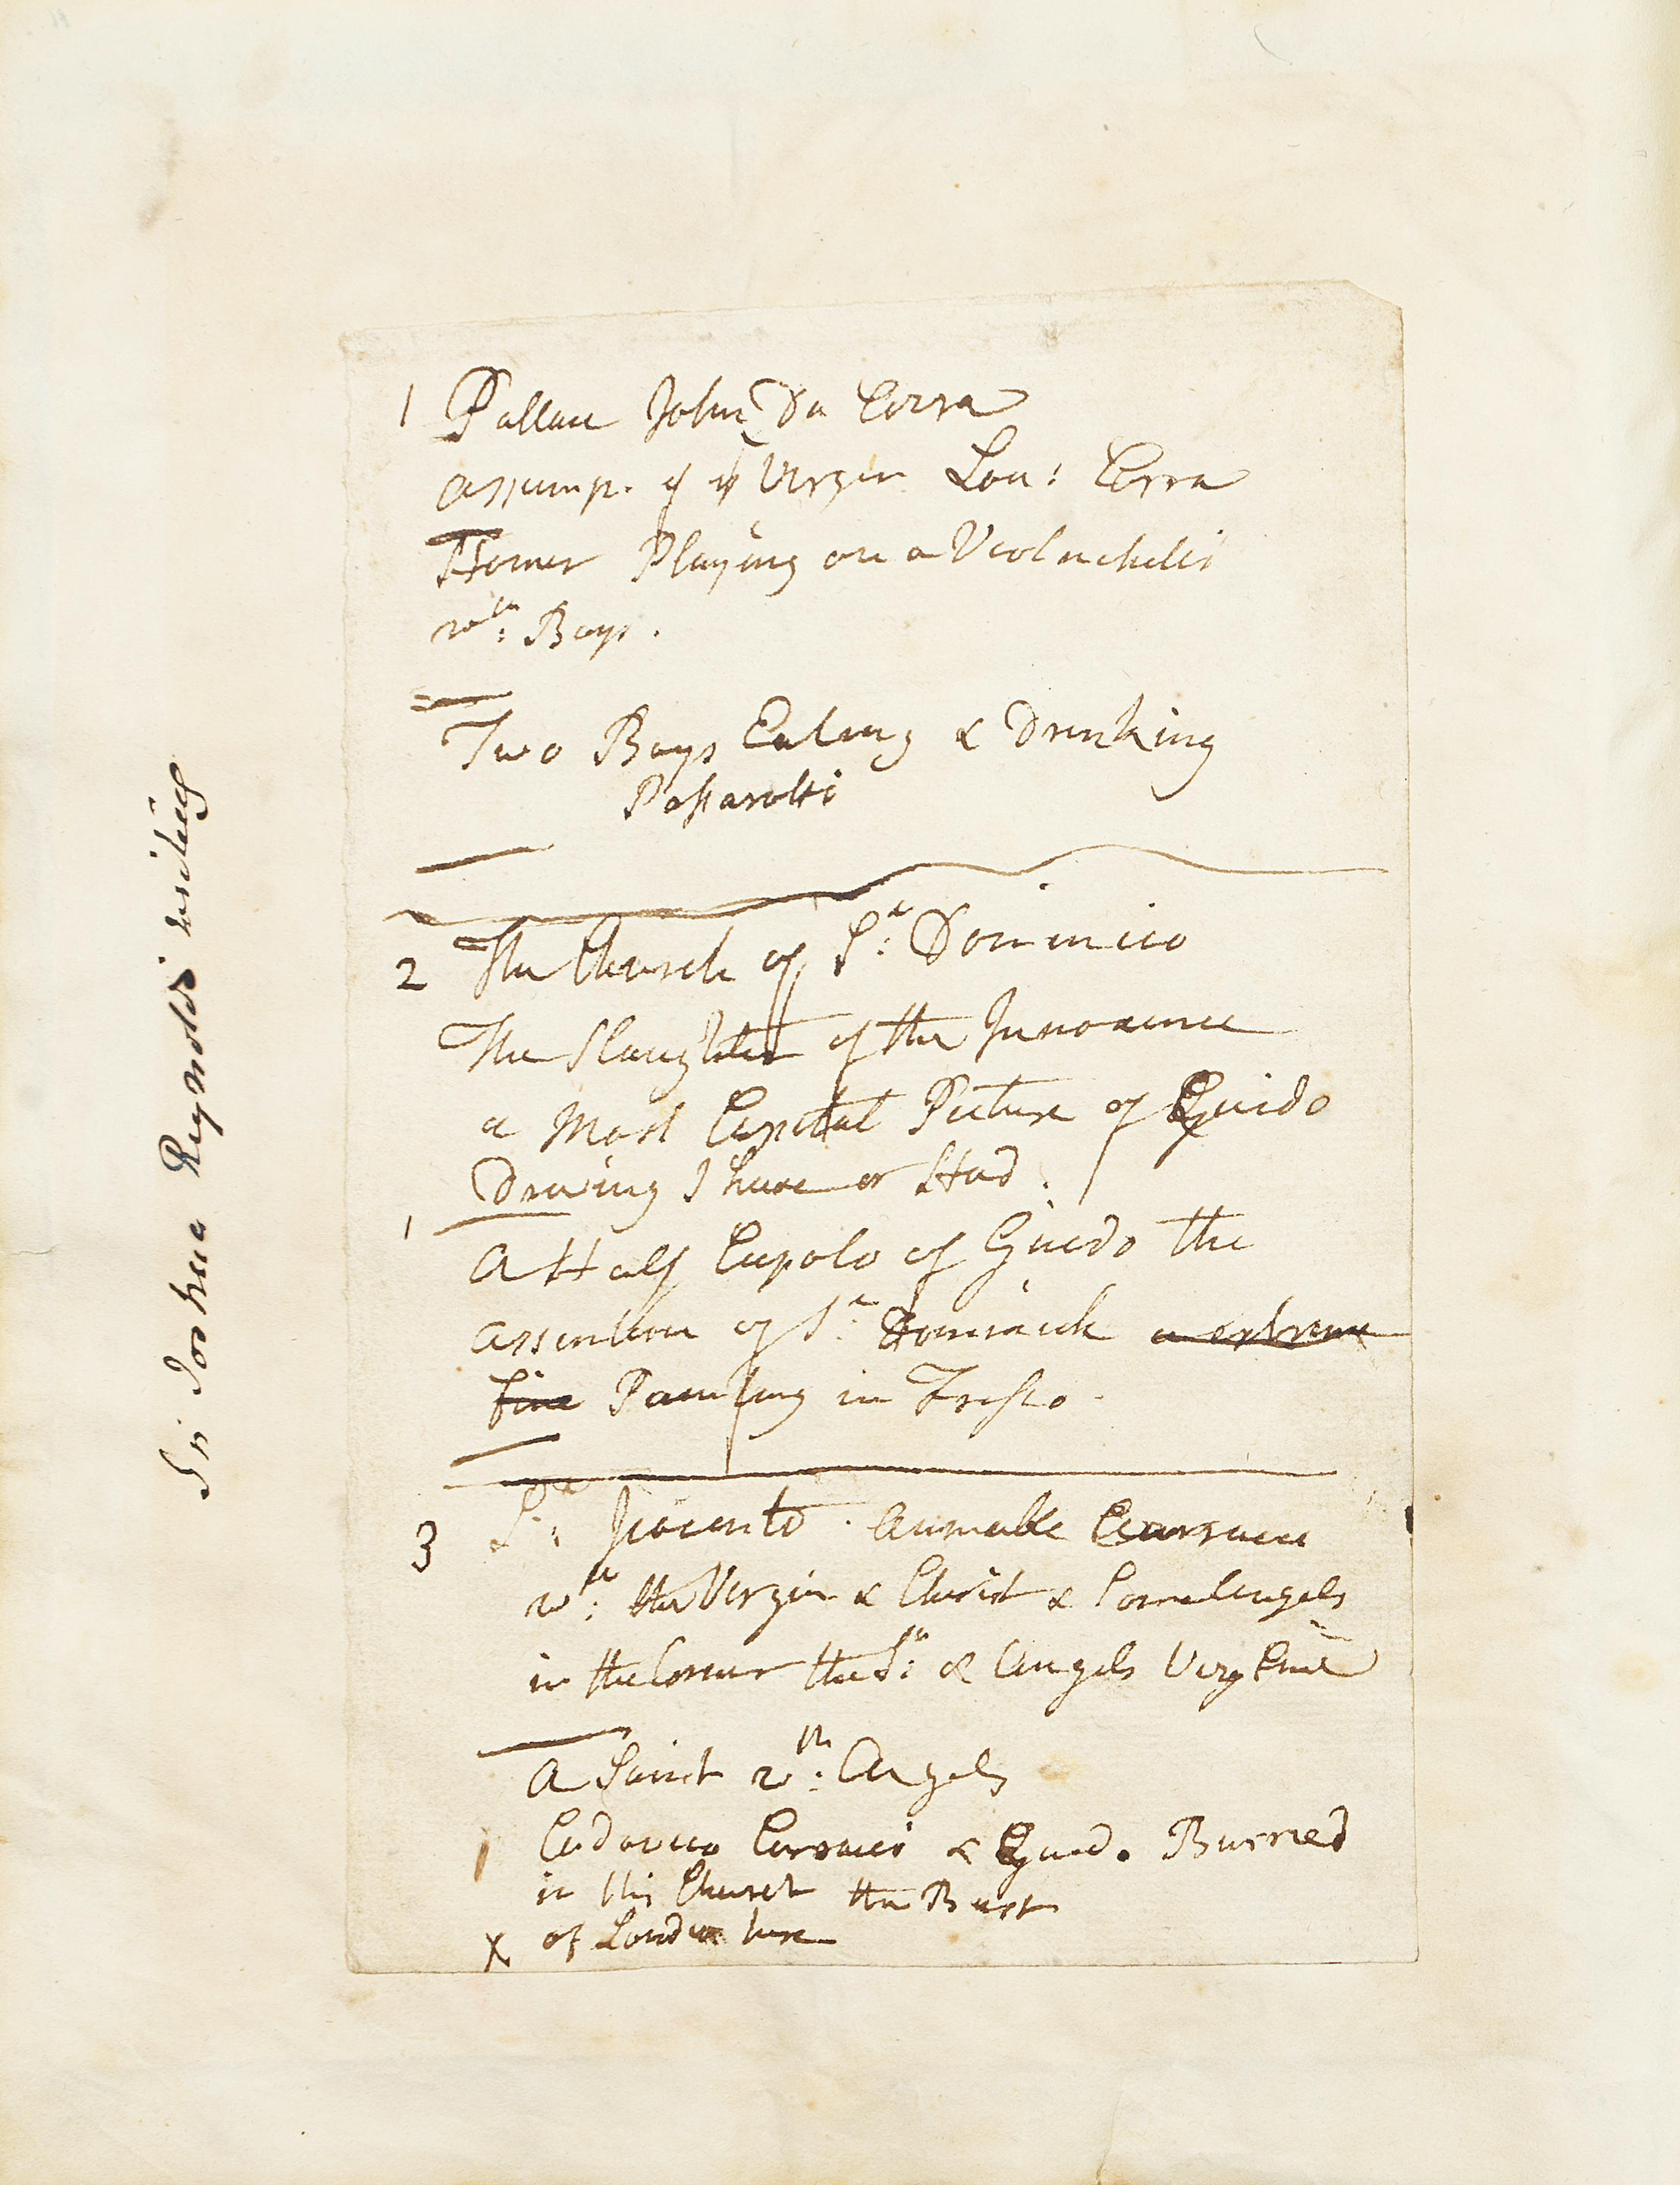 1 Pallace John Da Corra
assump. of ye Virgin Lou: Corra
Homer Playing on a Violnchelli
wth: Boys.
Two Boys Eating & Drinking
Passarotti
2 The Church of St: Dominico
The Slaughter of the Innocence
a Most Capital Picture of Guido
Drawing I have or Had.
1
A Half Cupolo of Guido the
assention of St: Dominick a extreme
fine Painting in Fresco.
3 St: Jiacinto. Annable Carracci
wth: the Virgin & Christ & some Angels
in the Corner the St: & Angels Very fine
A Saint wth: Angels
Ludovico Carracci & Guido. Burried
in this Church the Bust
x of Lodvo here
Sir Joshua Reynolds writing